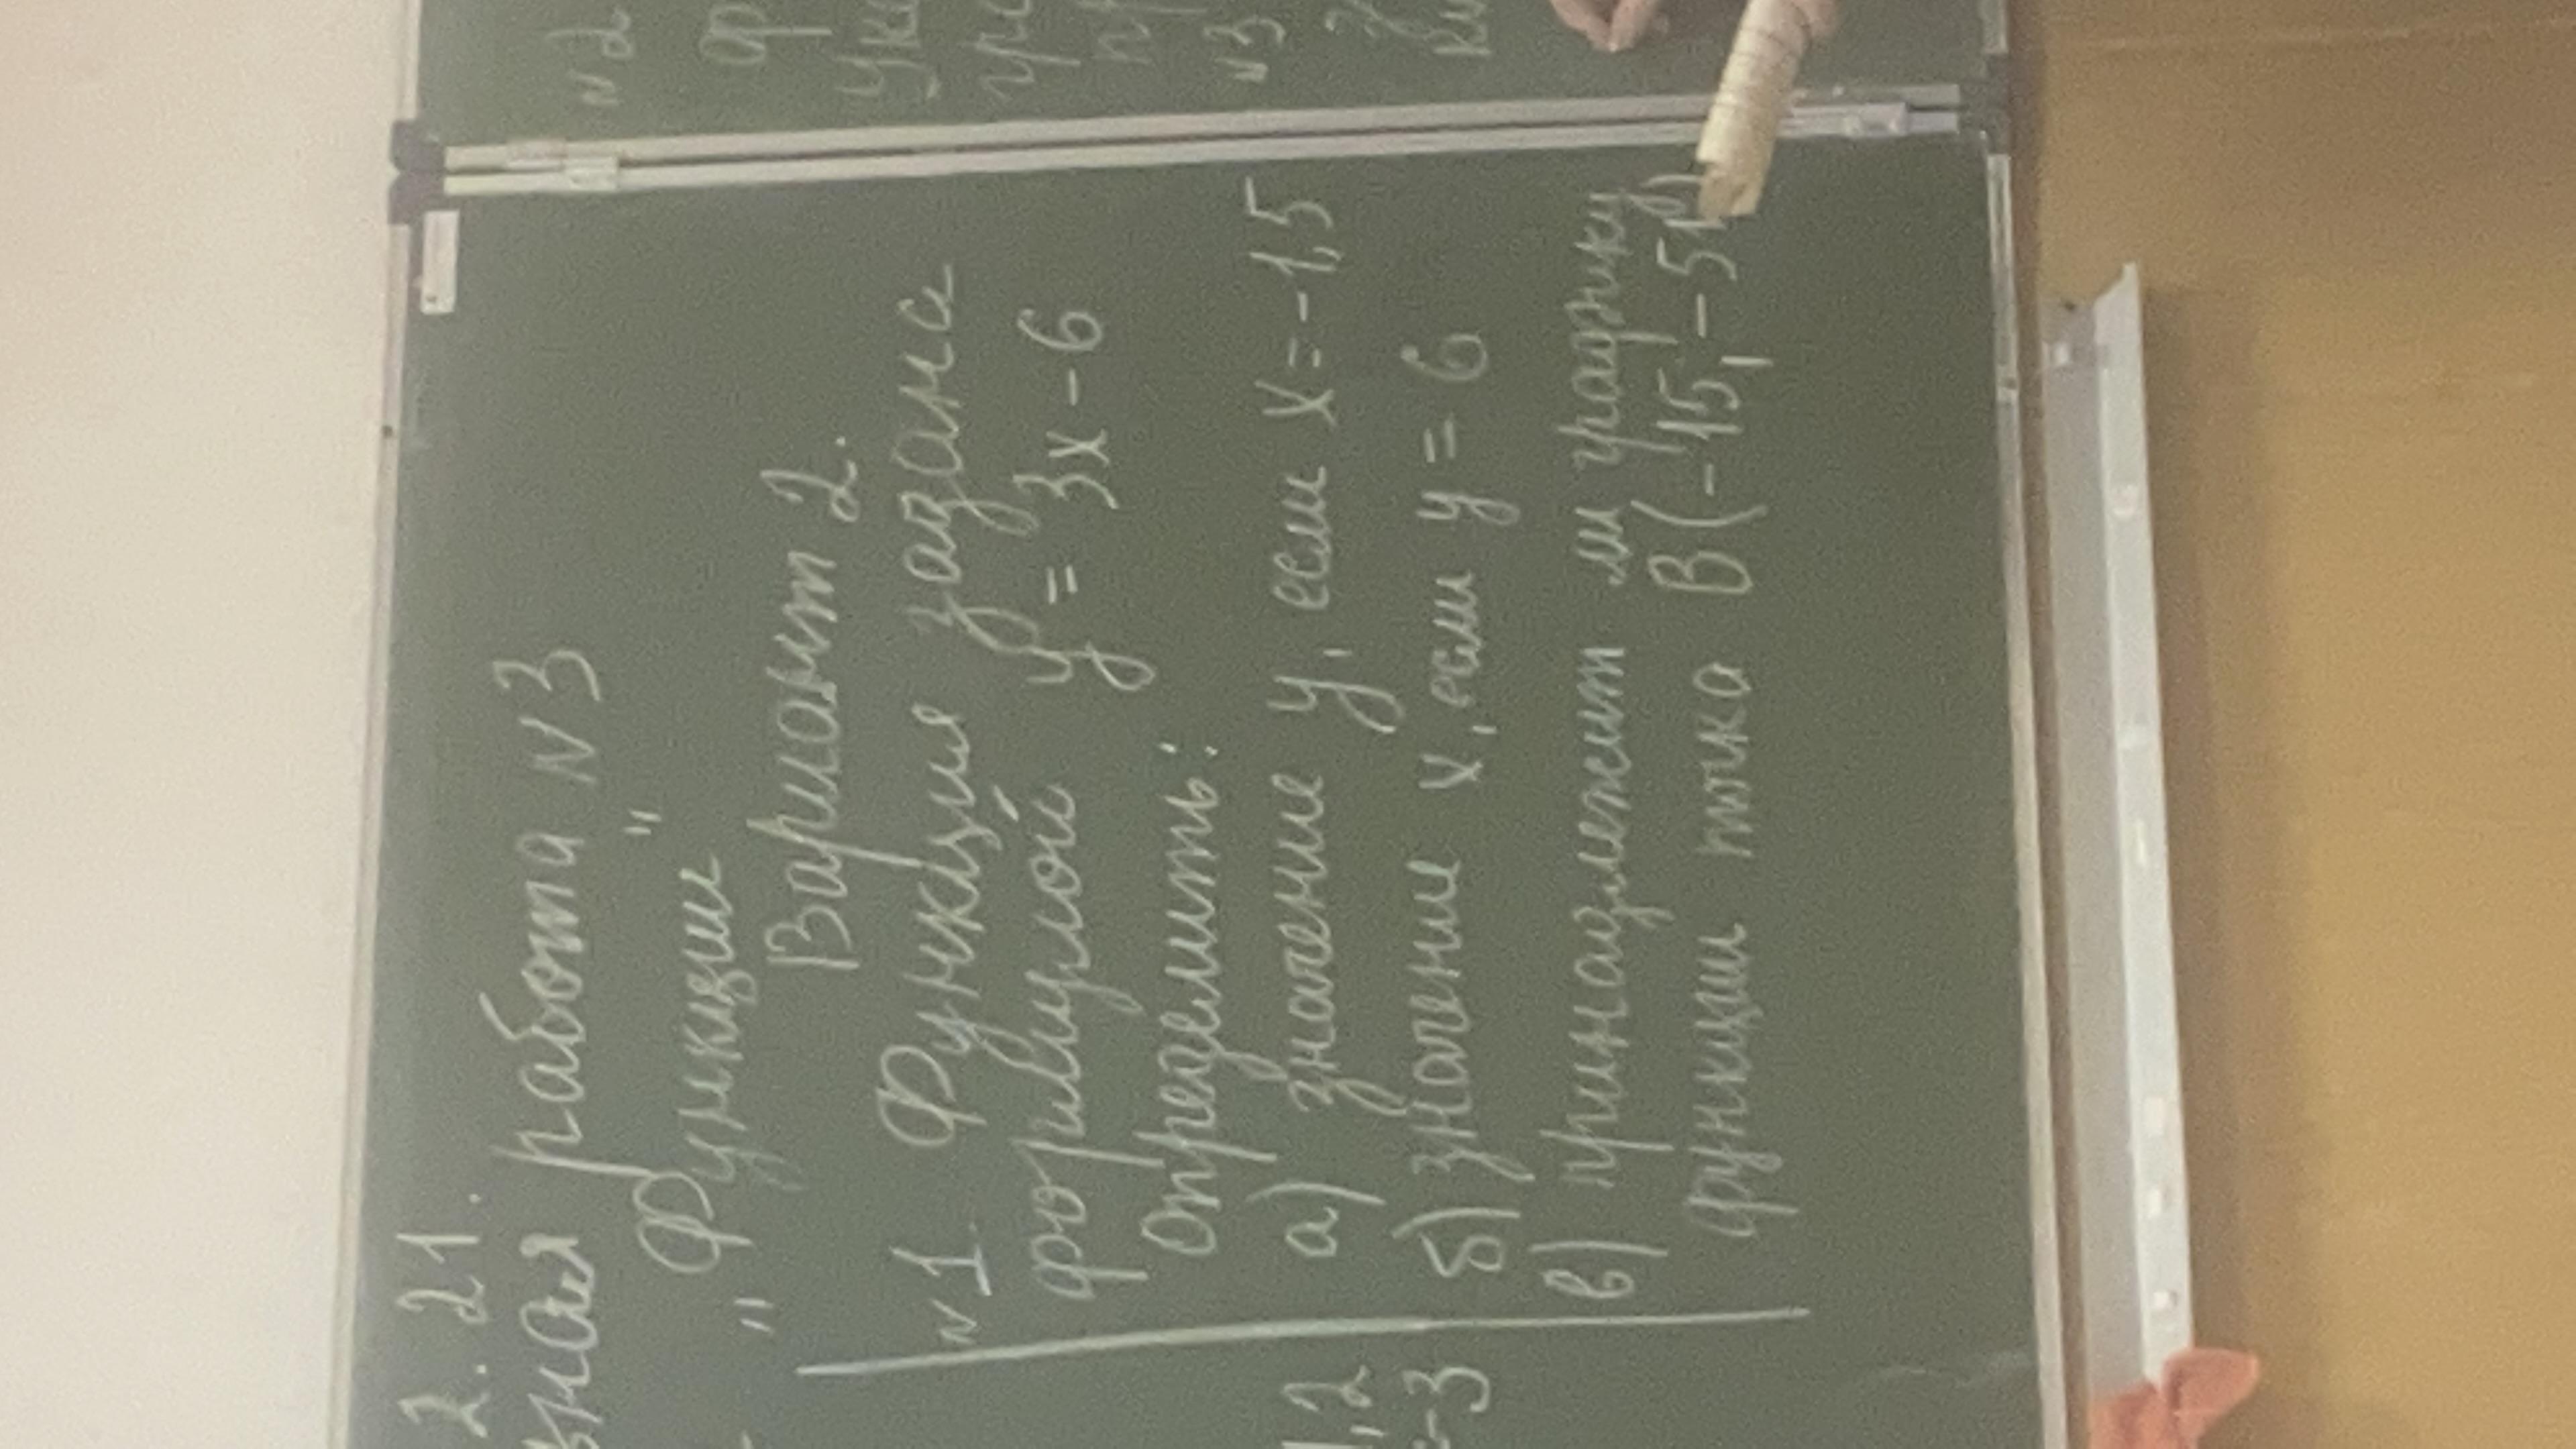 2. 21.
ная работа N3
" Функции "
Вариант 2.
N1 Функция задана
формулой y = 3x - 6
Определить:
а) значение y, если x = -1,5
б) значение x, если y = 6
в) принадлежит ли графику
функции точка B(-15; -51)
1,2
-3
N2
N3